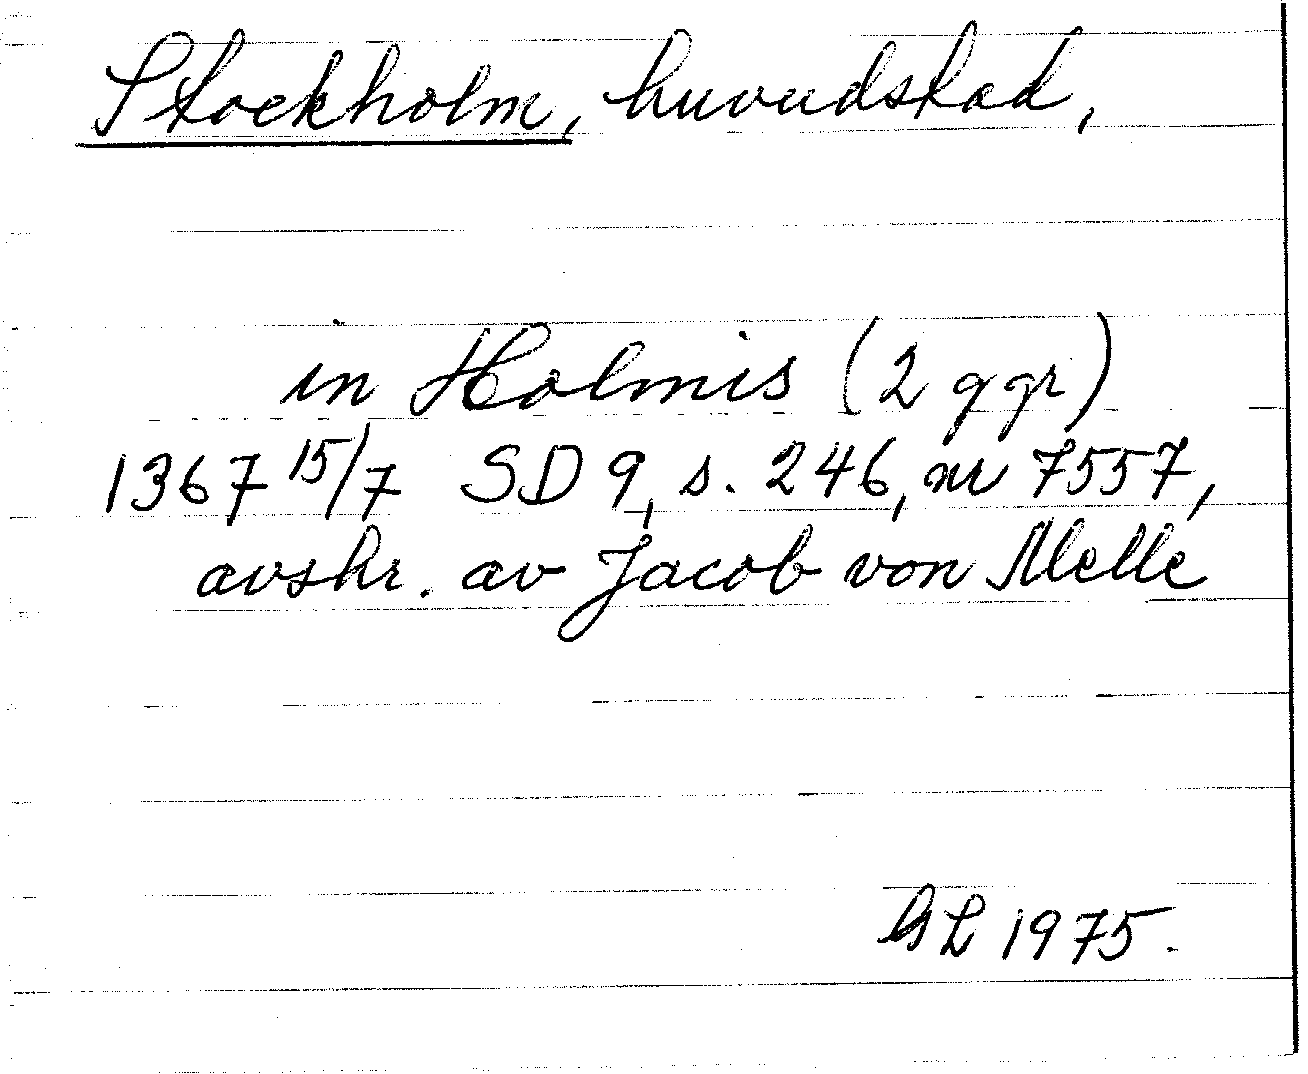 Stockholm, huvudstad,
in Holmis (2 ggr)
1367 15/7 SD 9, s. 246, nr 7557,
avskr. av Jacob von Melle
GL 1975.